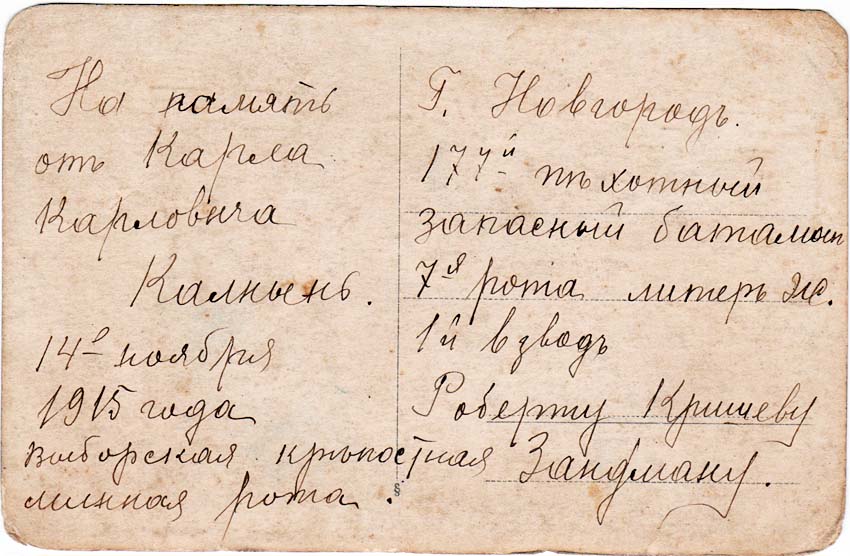 На память
отъ Карла
Карловича
Калнынь.
14го ноября
1915 года
Выборская крѣпостная
минная рота.
Г. Новгородъ.
177й пѣхотный
запасный баталион
7я рота литеръ Ж.
1й взводъ
Роберту
Зандману.